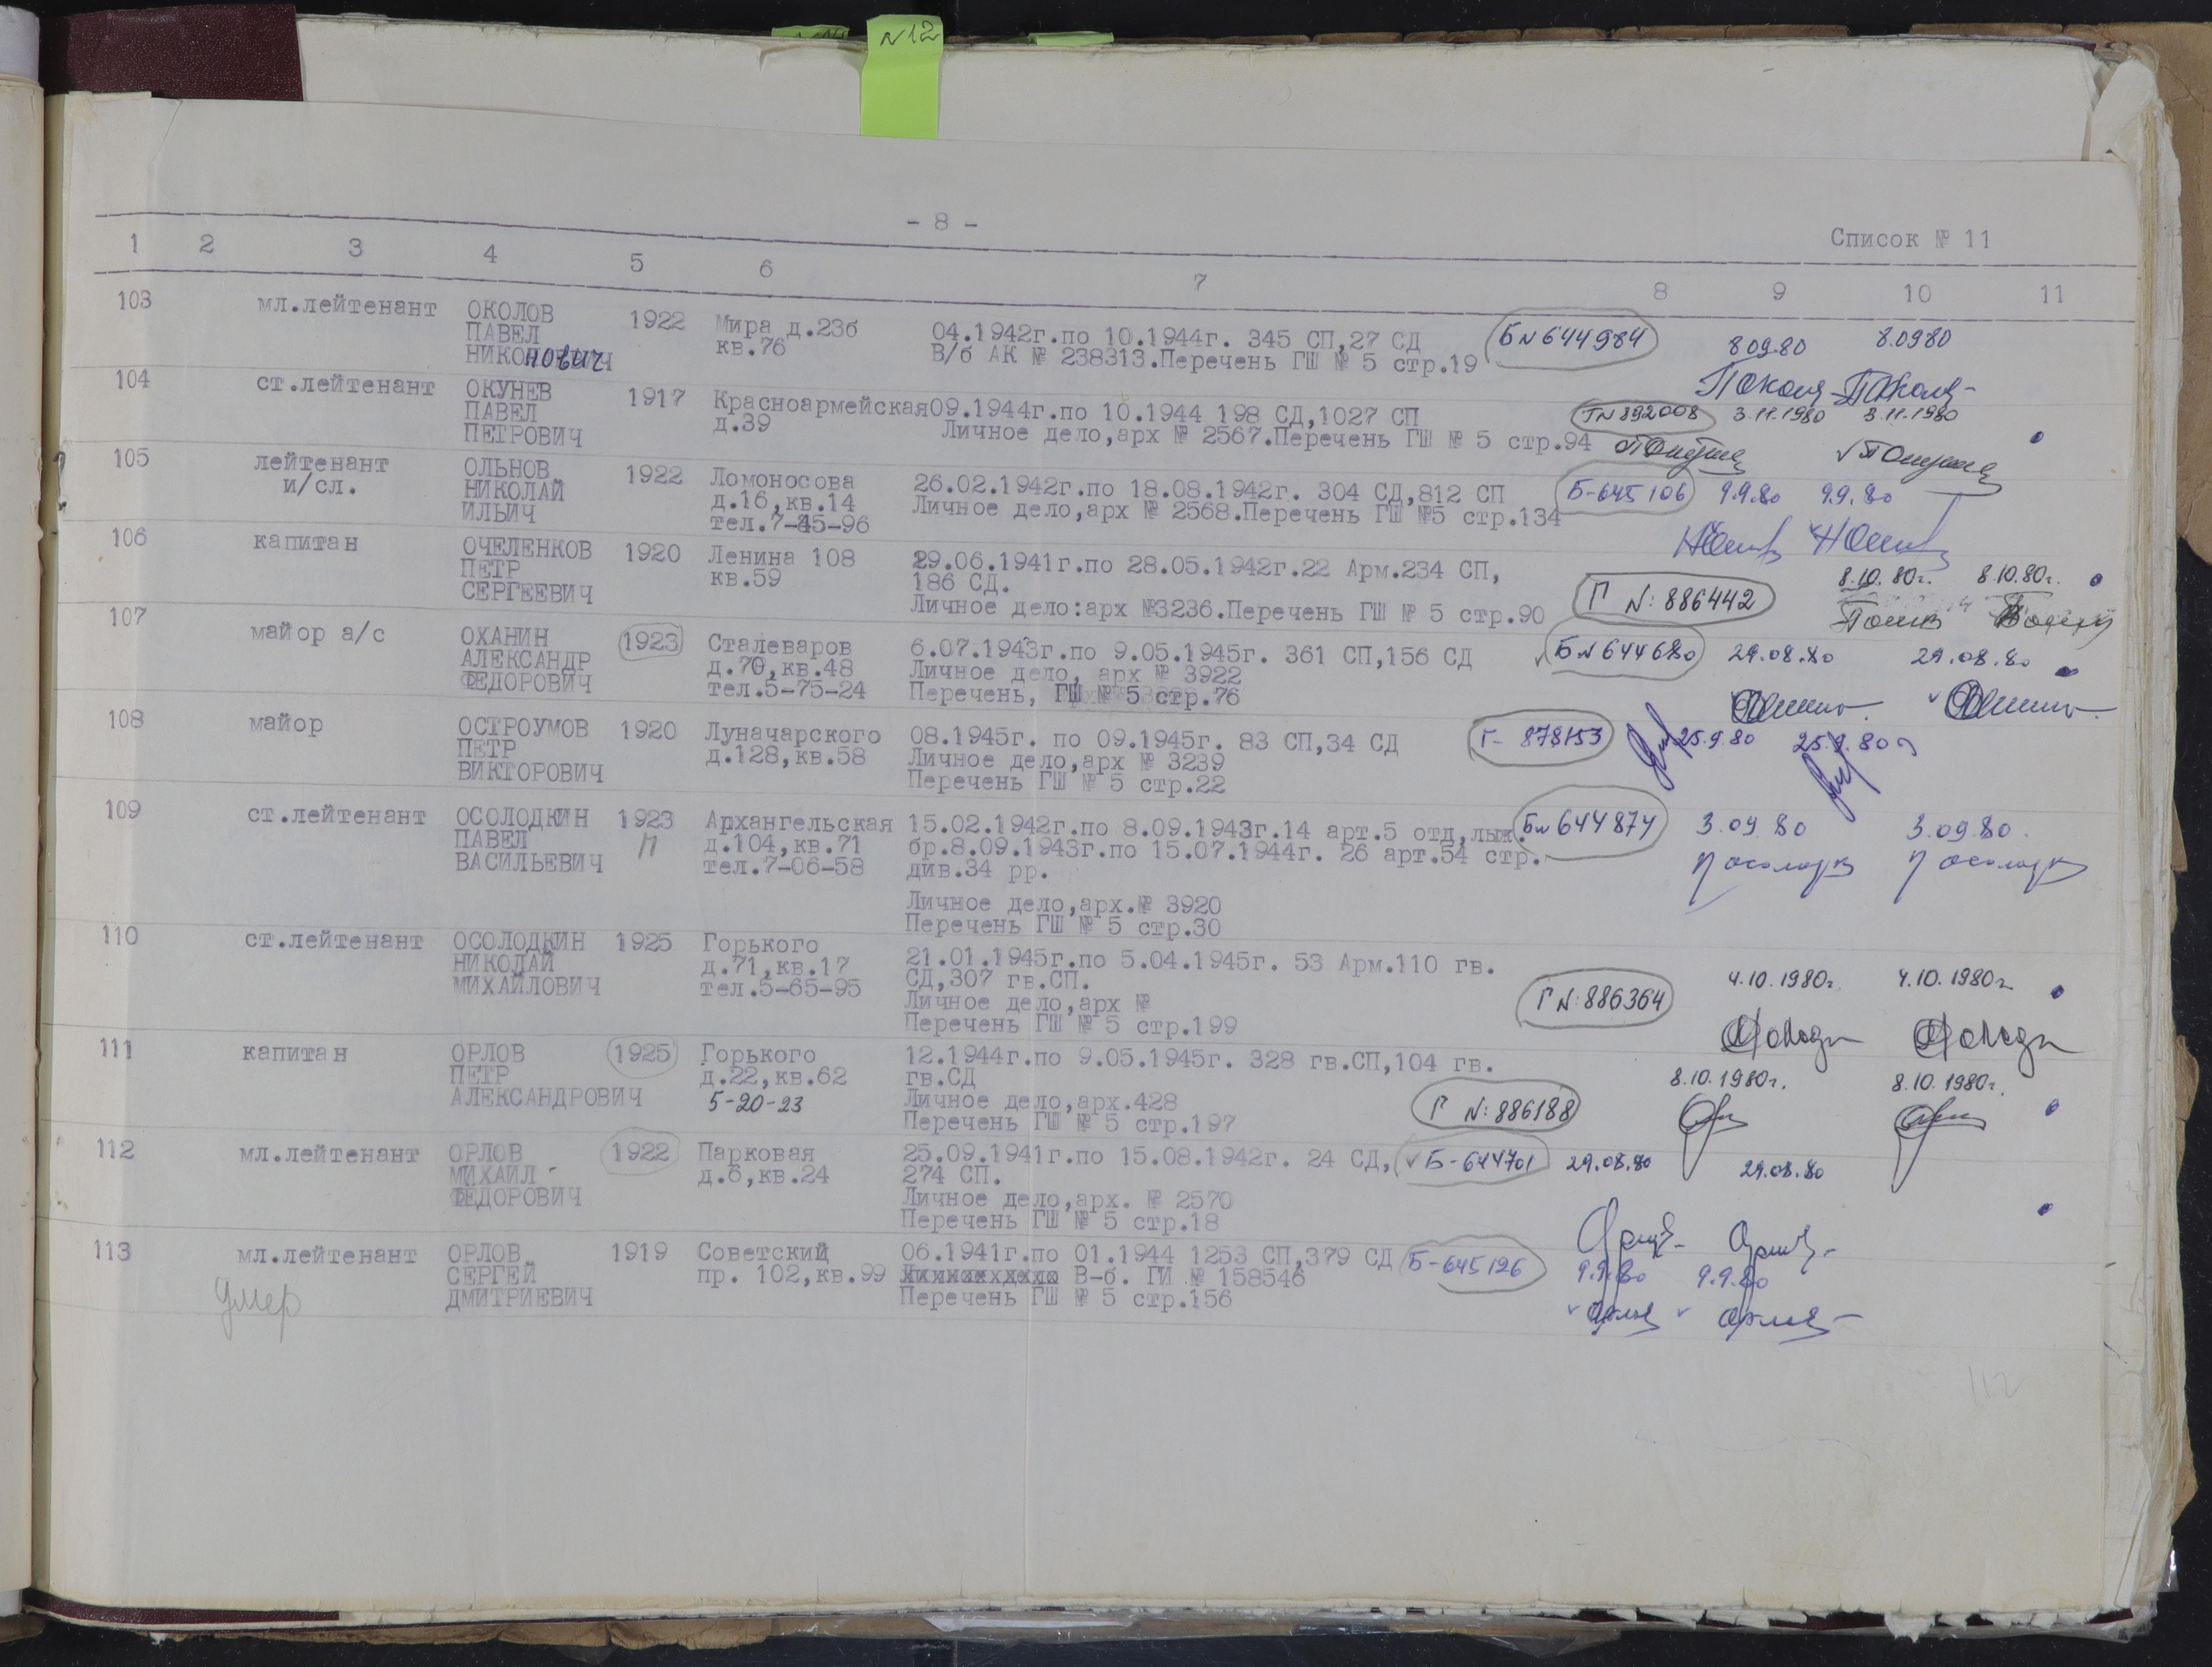 N12
- 8 -
Список № 11
1 2 3 4 5 6 7 8 9 10 11
103 мл.лейтенант ОКОЛОВ 1922 Мира д.23б 04.1942г.по 10.1944г. 345 СП,27 СД БN644984 8.09.80 8.09.80
ПАВЕЛ кв.76 В/б АК № 238313.Перечень ГШ № 5 стр.19
НИКОНОВИЧ
104 ст.лейтенант ОКУНЕВ 1917 Красноармейская 09.1944г.по 10.1944 198 СД,1027 СП ГN892008 3.11.1980 3.11.1980
ПАВЕЛ д.39 Личное дело,арх № 2567.Перечень ГШ № 5 стр.94
ПЕТРОВИЧ
105 лейтенант ОЛЬНОВ 1922 Ломоносова 26.02.1942г.по 18.08.1942г. 304 СД,812 СП Б-645106 9.9.80 9.9.80
и/сл. НИКОЛАЙ д.16,кв.14 Личное дело,арх № 2568.Перечень ГШ №5 стр.134
ИЛЬИЧ тел.7-45-96
106 капитан ОЧЕЛЕНКОВ 1920 Ленина 108 29.06.1941г.по 28.05.1942г.22 Арм.234 СП, Г N:886442 8.10.80г. 8.10.80г.
ПЕТР кв.59 186 СД.
СЕРГЕЕВИЧ Личное дело:арх №3236.Перечень ГШ № 5 стр.90
107 майор а/с ОХАНИН 1923 Сталеваров 6.07.1943г.по 9.05.1945г. 361 СП,156 СД БN644680 29.08.80 29.08.80
АЛЕКСАНДР д.70,кв.48 Личное дело, арх № 3922
ФЕДОРОВИЧ тел.5-75-24 Перечень, ГШ № 5 стр.76
108 майор ОСТРОУМОВ 1920 Луначарского 08.1945г. по 09.1945г. 83 СП,34 СД Г- 878153 25.9.80 25.9.80
ПЕТР д.128,кв.58 Личное дело,арх № 3239
ВИКТОРОВИЧ Перечень ГШ № 5 стр.22
109 ст.лейтенант ОСОЛОДКИН 1923 Архангельская 15.02.1942г.по 8.09.1943г.14 арт.5 отд,лыж. БN644874 3.09.80 3.09.80.
ПАВЕЛ д.104,кв.71 бр.8.09.1943г.по 15.07.1944г. 26 арт.54 стр.
ВАСИЛЬЕВИЧ тел.7-06-58 див.34 рр.
Личное дело,арх.№ 3920
Перечень ГШ № 5 стр.30
110 ст.лейтенант ОСОЛОДКИН 1925 Горького 21.01.1945г.по 5.04.1945г. 53 Арм.110 гв. Г N:886364 4.10.1980г. 4.10.1980г
НИКОЛАЙ д.71,кв.17 СД,307 гв.СП.
МИХАЙЛОВИЧ тел.5-65-95 Личное дело,арх №
Перечень ГШ № 5 стр.199
111 капитан ОРЛОВ 1925 Горького 12.1944г.по 9.05.1945г. 328 гв.СП,104 гв. Г N:886188 8.10.1980г. 8.10.1980г.
ПЕТР д.22,кв.62 гв.СД
АЛЕКСАНДРОВИЧ 5-20-23 Личное дело,арх.428
Перечень ГШ № 5 стр.197
112 мл.лейтенант ОРЛОВ 1922 Парковая 25.09.1941г.по 15.08.1942г. 24 СД, Б-644701 29.08.80 29.08.80
МИХАИЛ д.6,кв.24 274 СП.
ФЕДОРОВИЧ Личное дело,арх. № 2570
Перечень ГШ № 5 стр.18
113 мл.лейтенант ОРЛОВ 1919 Советский 06.1941г.по 01.1944 1253 СП,379 СД Б-645126 9.9.80 9.9.80
умер СЕРГЕЙ пр. 102,кв.99 В-б. ГИ № 158546
ДМИТРИЕВИЧ Перечень ГШ № 5 стр.156
112